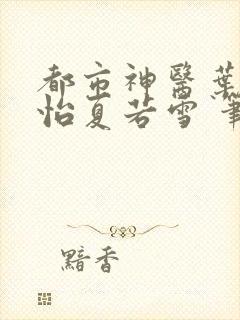 都市神醫葉
怡夏若雪
黯香